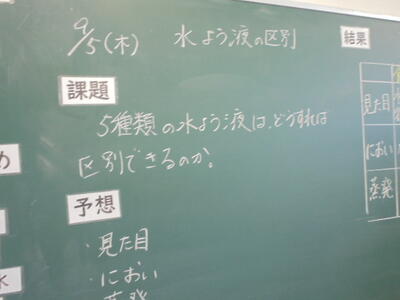 9/5(木) 水よう液の区別
結果
課題
5種類の水よう液は、どうすれば
区別できるのか。
予想
・見た目
・におい
蒸発
見た目
におい
蒸発
め
水